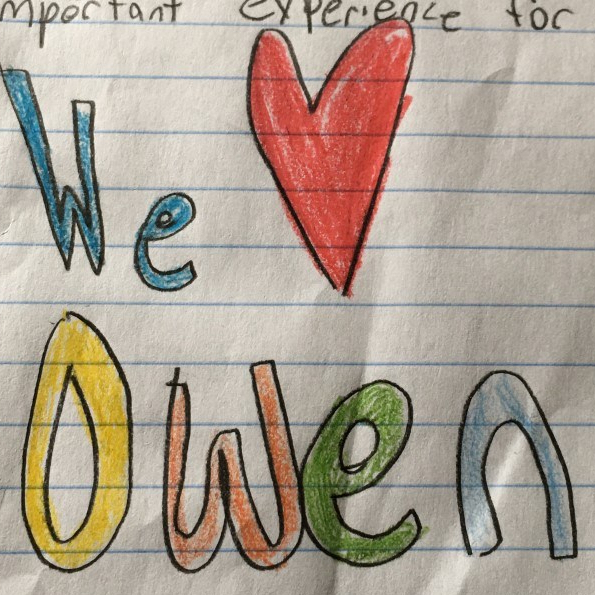 mportant experience for
We ❤
Owen